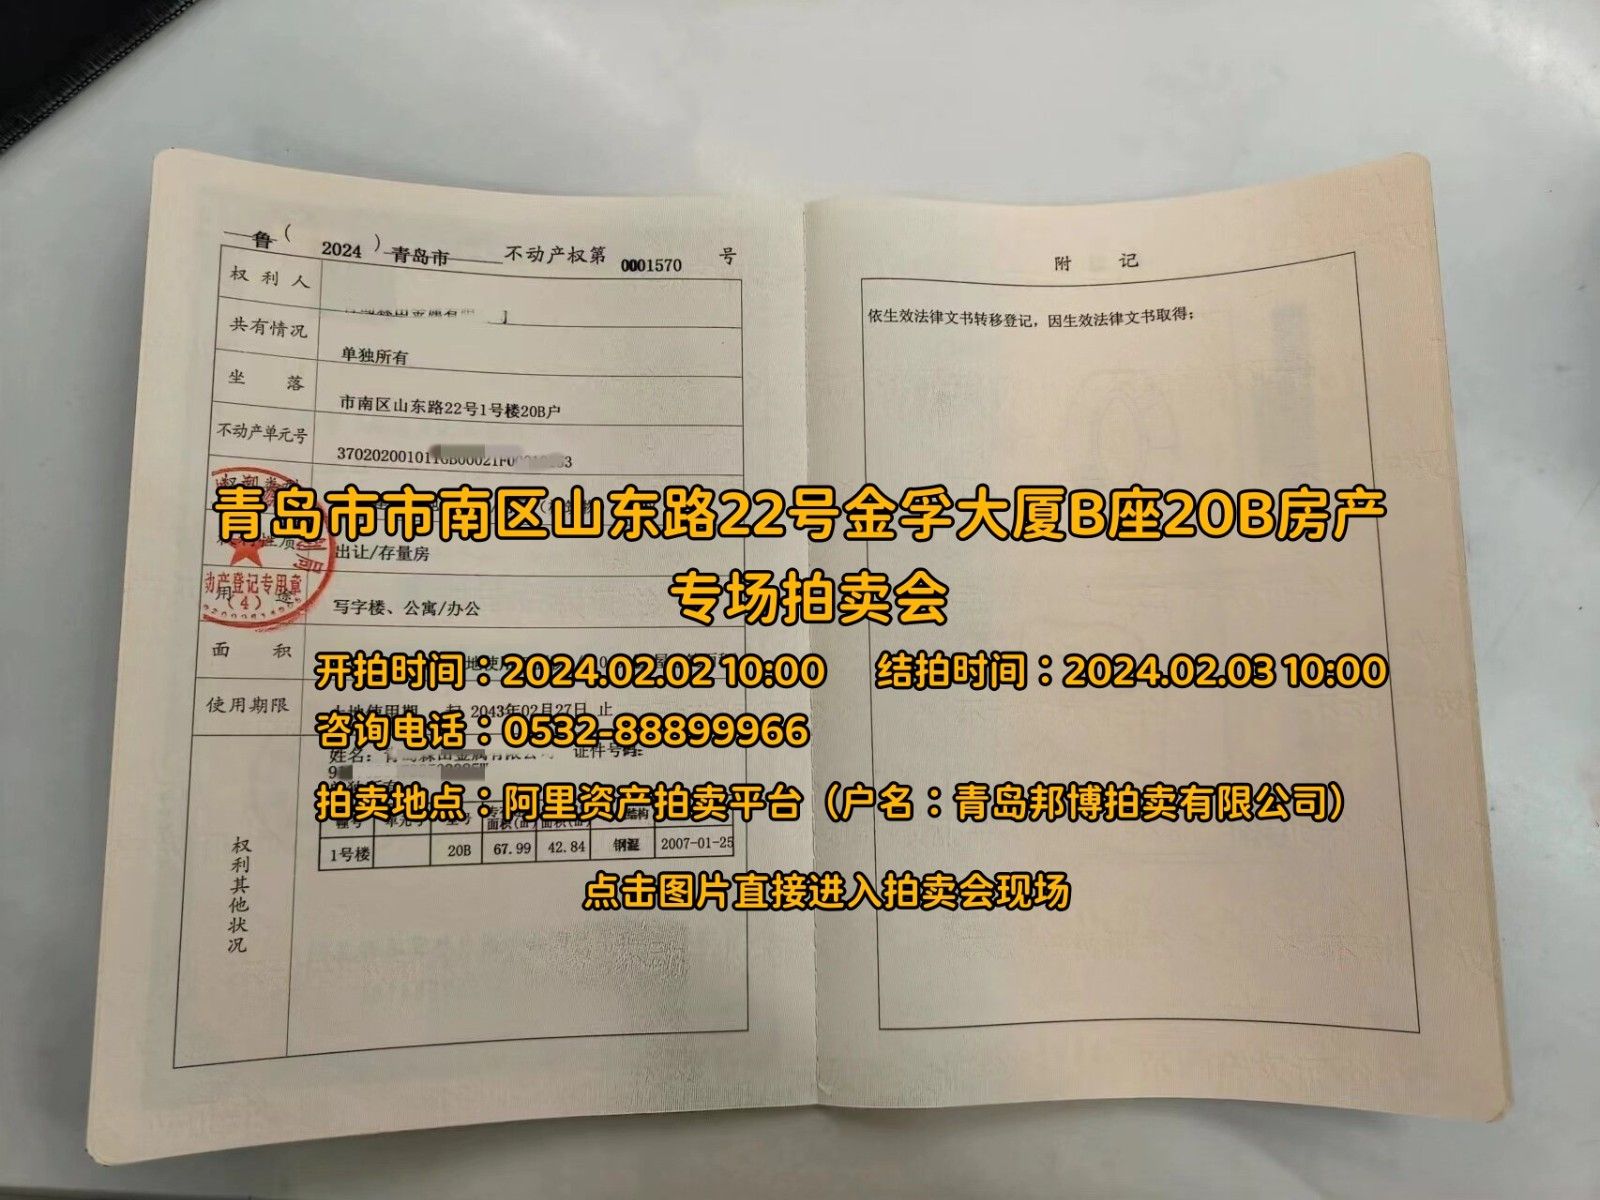 鲁（2024）青岛市 不动产权第 0001570 号
权利人
共有情况 单独所有
坐落 市南区山东路22号1号楼20B户
不动产单元号
青岛市市南区山东路22号金孚大厦B座20B房产
专场拍卖会
出让/存量房
动产登记专用章
（4）
用途 写字楼、公寓/办公
面积
开拍时间：2024.02.02 10:00 结拍时间：2024.02.03 10:00
使用期限 2043年02月27日 止
咨询电话：0532-88899966
姓名： 证件号码：
拍卖地点：阿里资产拍卖平台（户名：青岛邦博拍卖有限公司）
1号楼 20B 67.99 42.84 钢混 2007-01-25
权利其他状况
点击图片直接进入拍卖会现场
附 记
依生效法律文书转移登记，因生效法律文书取得；